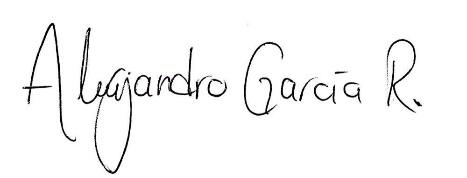 Alejandro García R.